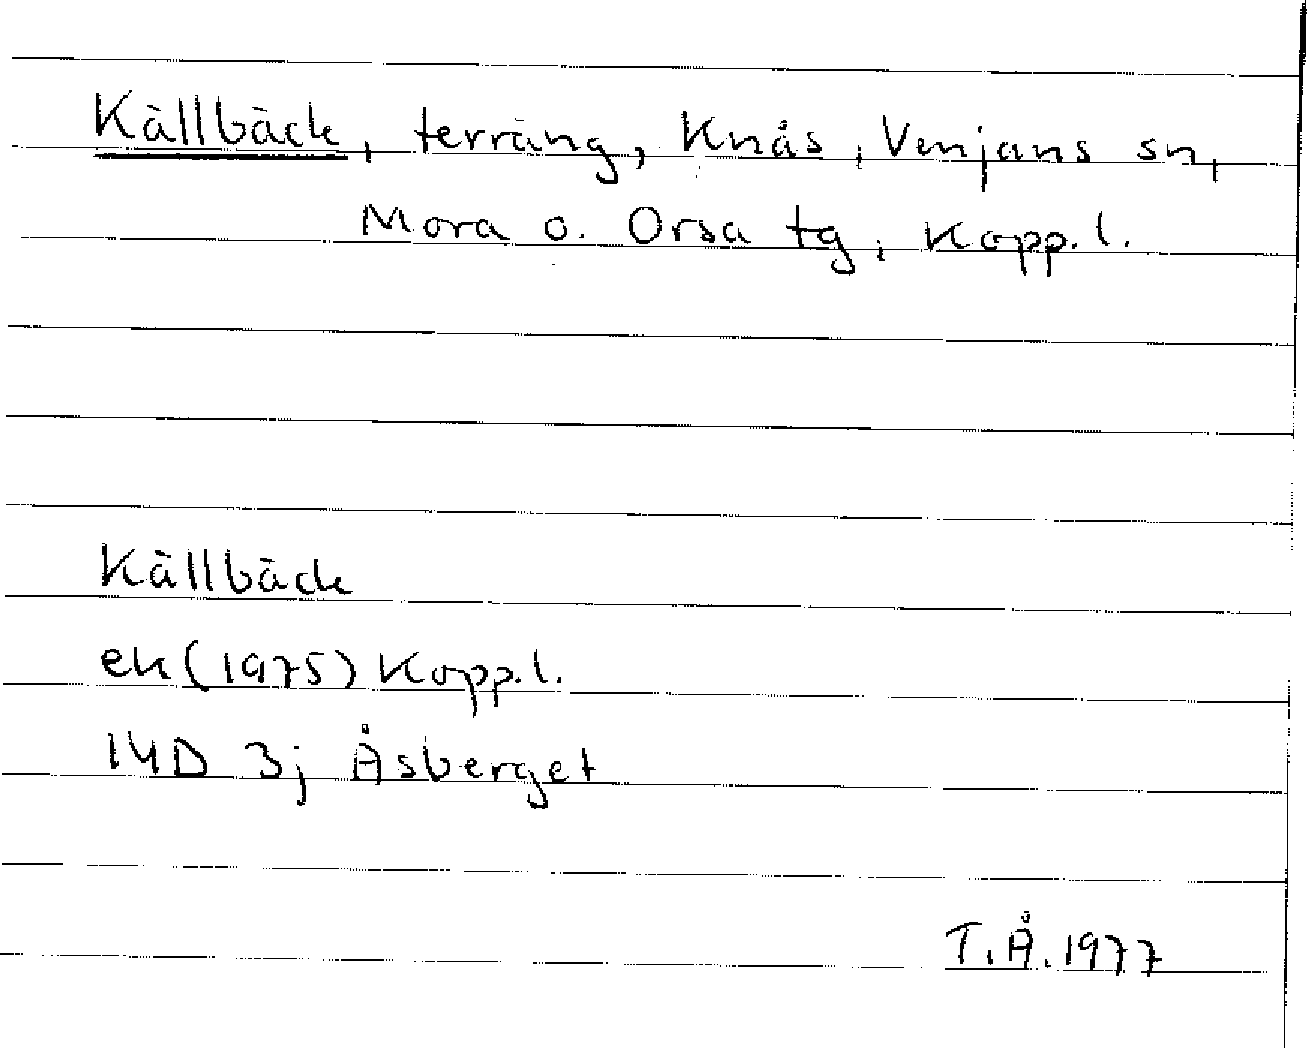 Källbäck, terräng, Knås, Venjans sn,
Mora o. Orsa tg, Kopp. l.
Källbäck
ek (1975) Kopp. l.
14D 3j Åsberget
T. Å. 1977